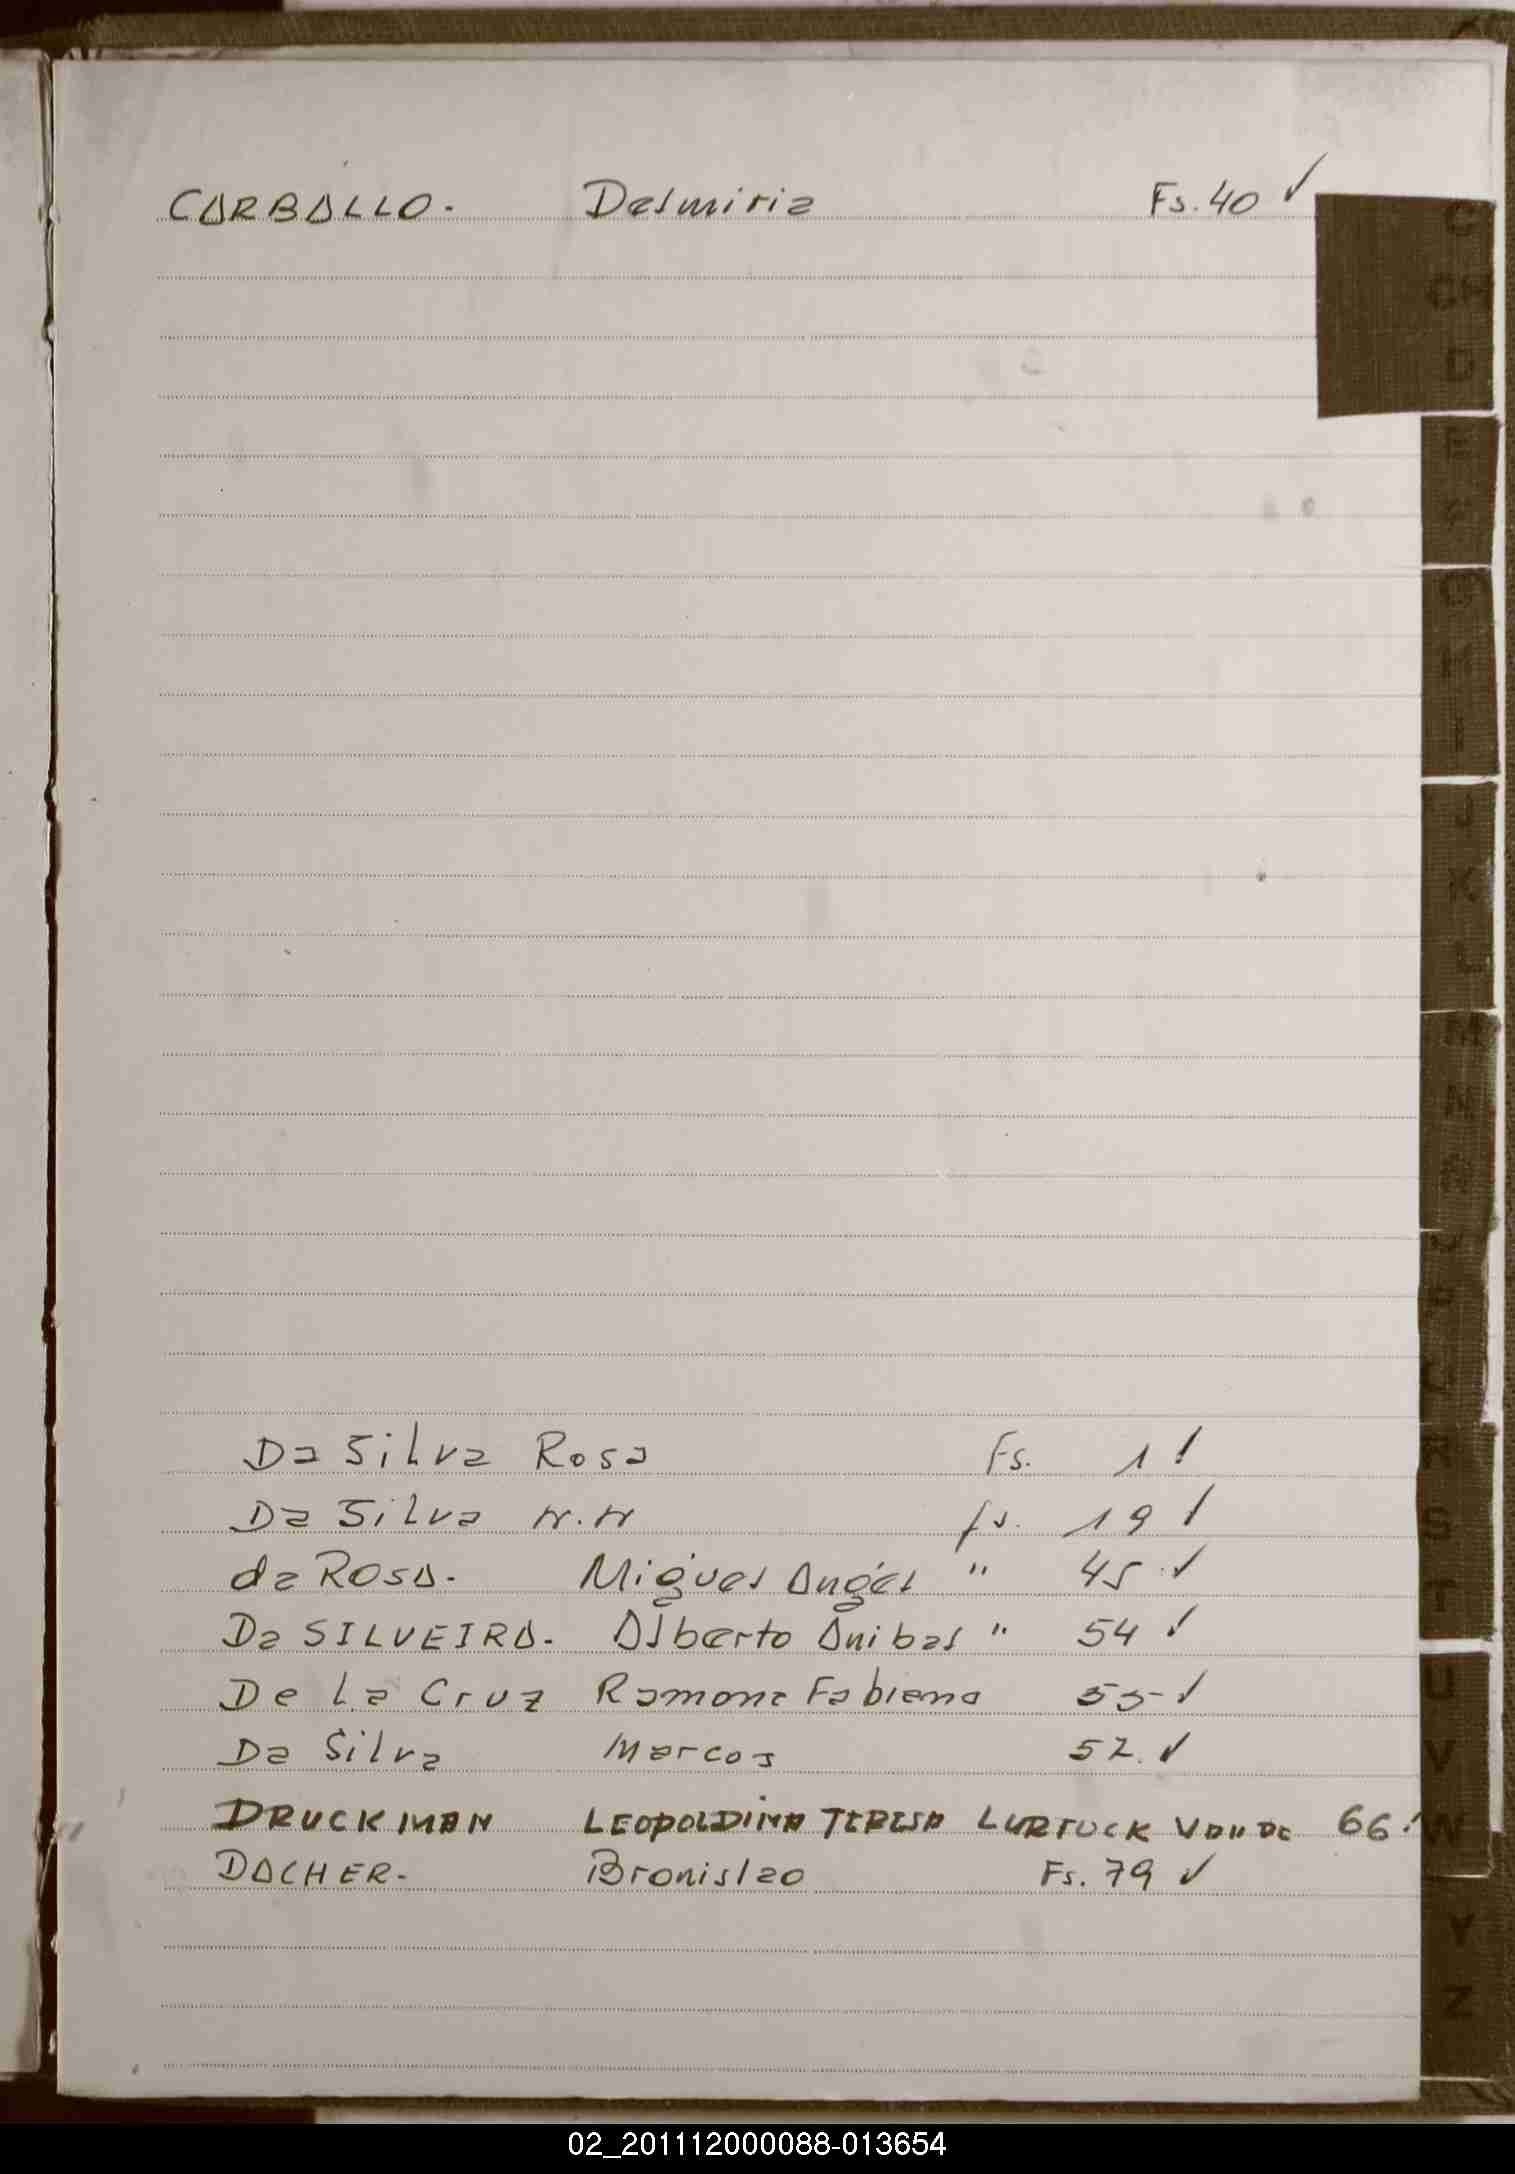 CARBALLO. Delmiria Fs. 40 ✓
C
CH
D
E
F
G
H
I
J
K
L
M
N
Ñ
O
P
Q
R
S
T
U
V
W
Y
Z
Da Silva Rosa Fs. 1 !
Da Silva N.N fs. 19 !
da ROSA. Miguel Angel " 45 ✓
Da SILVEIRA. Alberto Anibal " 54 !
De La Cruz Ramona Fabiana 55 ✓
Da Silva Marcos 52. ✓
DRUCKMAN LEOPOLDINA TERESA 66!
DACHER. Bronislao Fs. 79 ✓
02_201112000088-013654